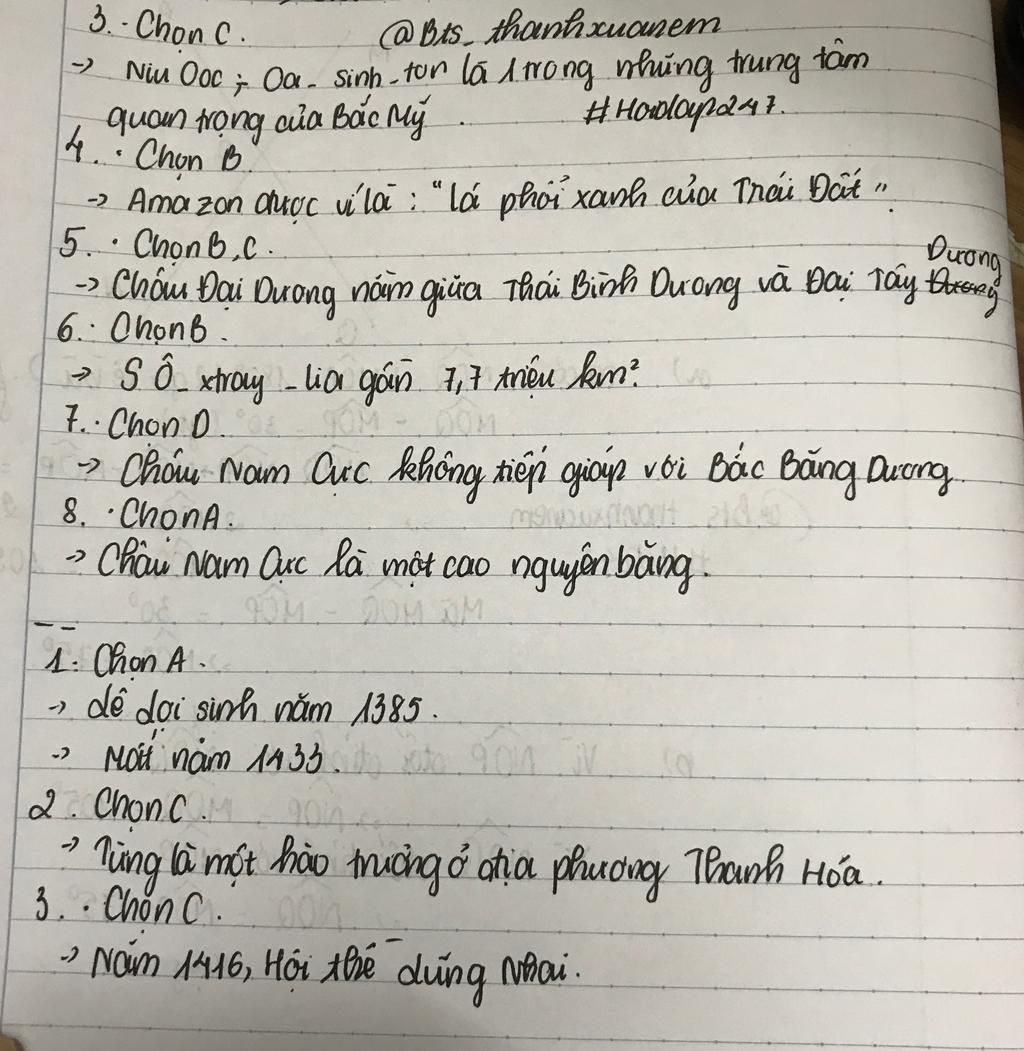 3. Chọn C. @Bts_thanhxuanem
-> Niu Ooc ; Oa - sinh - tơn là 1 trong những trung tâm
quan trọng của Bắc Mỹ. #Hoidap247.
4. Chọn B
-> Amazon được ví là : "lá phổi xanh của Trái Đất".
5. Chọn B, C.
-> Châu Đại Dương nằm giữa Thái Bình Dương và Đại Tây Dương
6. Chọn B.
-> S Ô - xtray - lia gần 7,7 triệu km².
7. Chọn D.
-> Châu Nam Cực không tiếp giáp với Bắc Băng Dương.
8. Chọn A.
-> Châu Nam Cực là một cao nguyên băng.
1. Chọn A.
-> dê dợi sinh năm 1385.
-> Mất năm 1433.
2. Chọn C.
-> Từng là một hào trưởng ở địa phương Thanh Hóa.
3. Chọn C.
-> Năm 1416, Hội thề dũng Nhai.